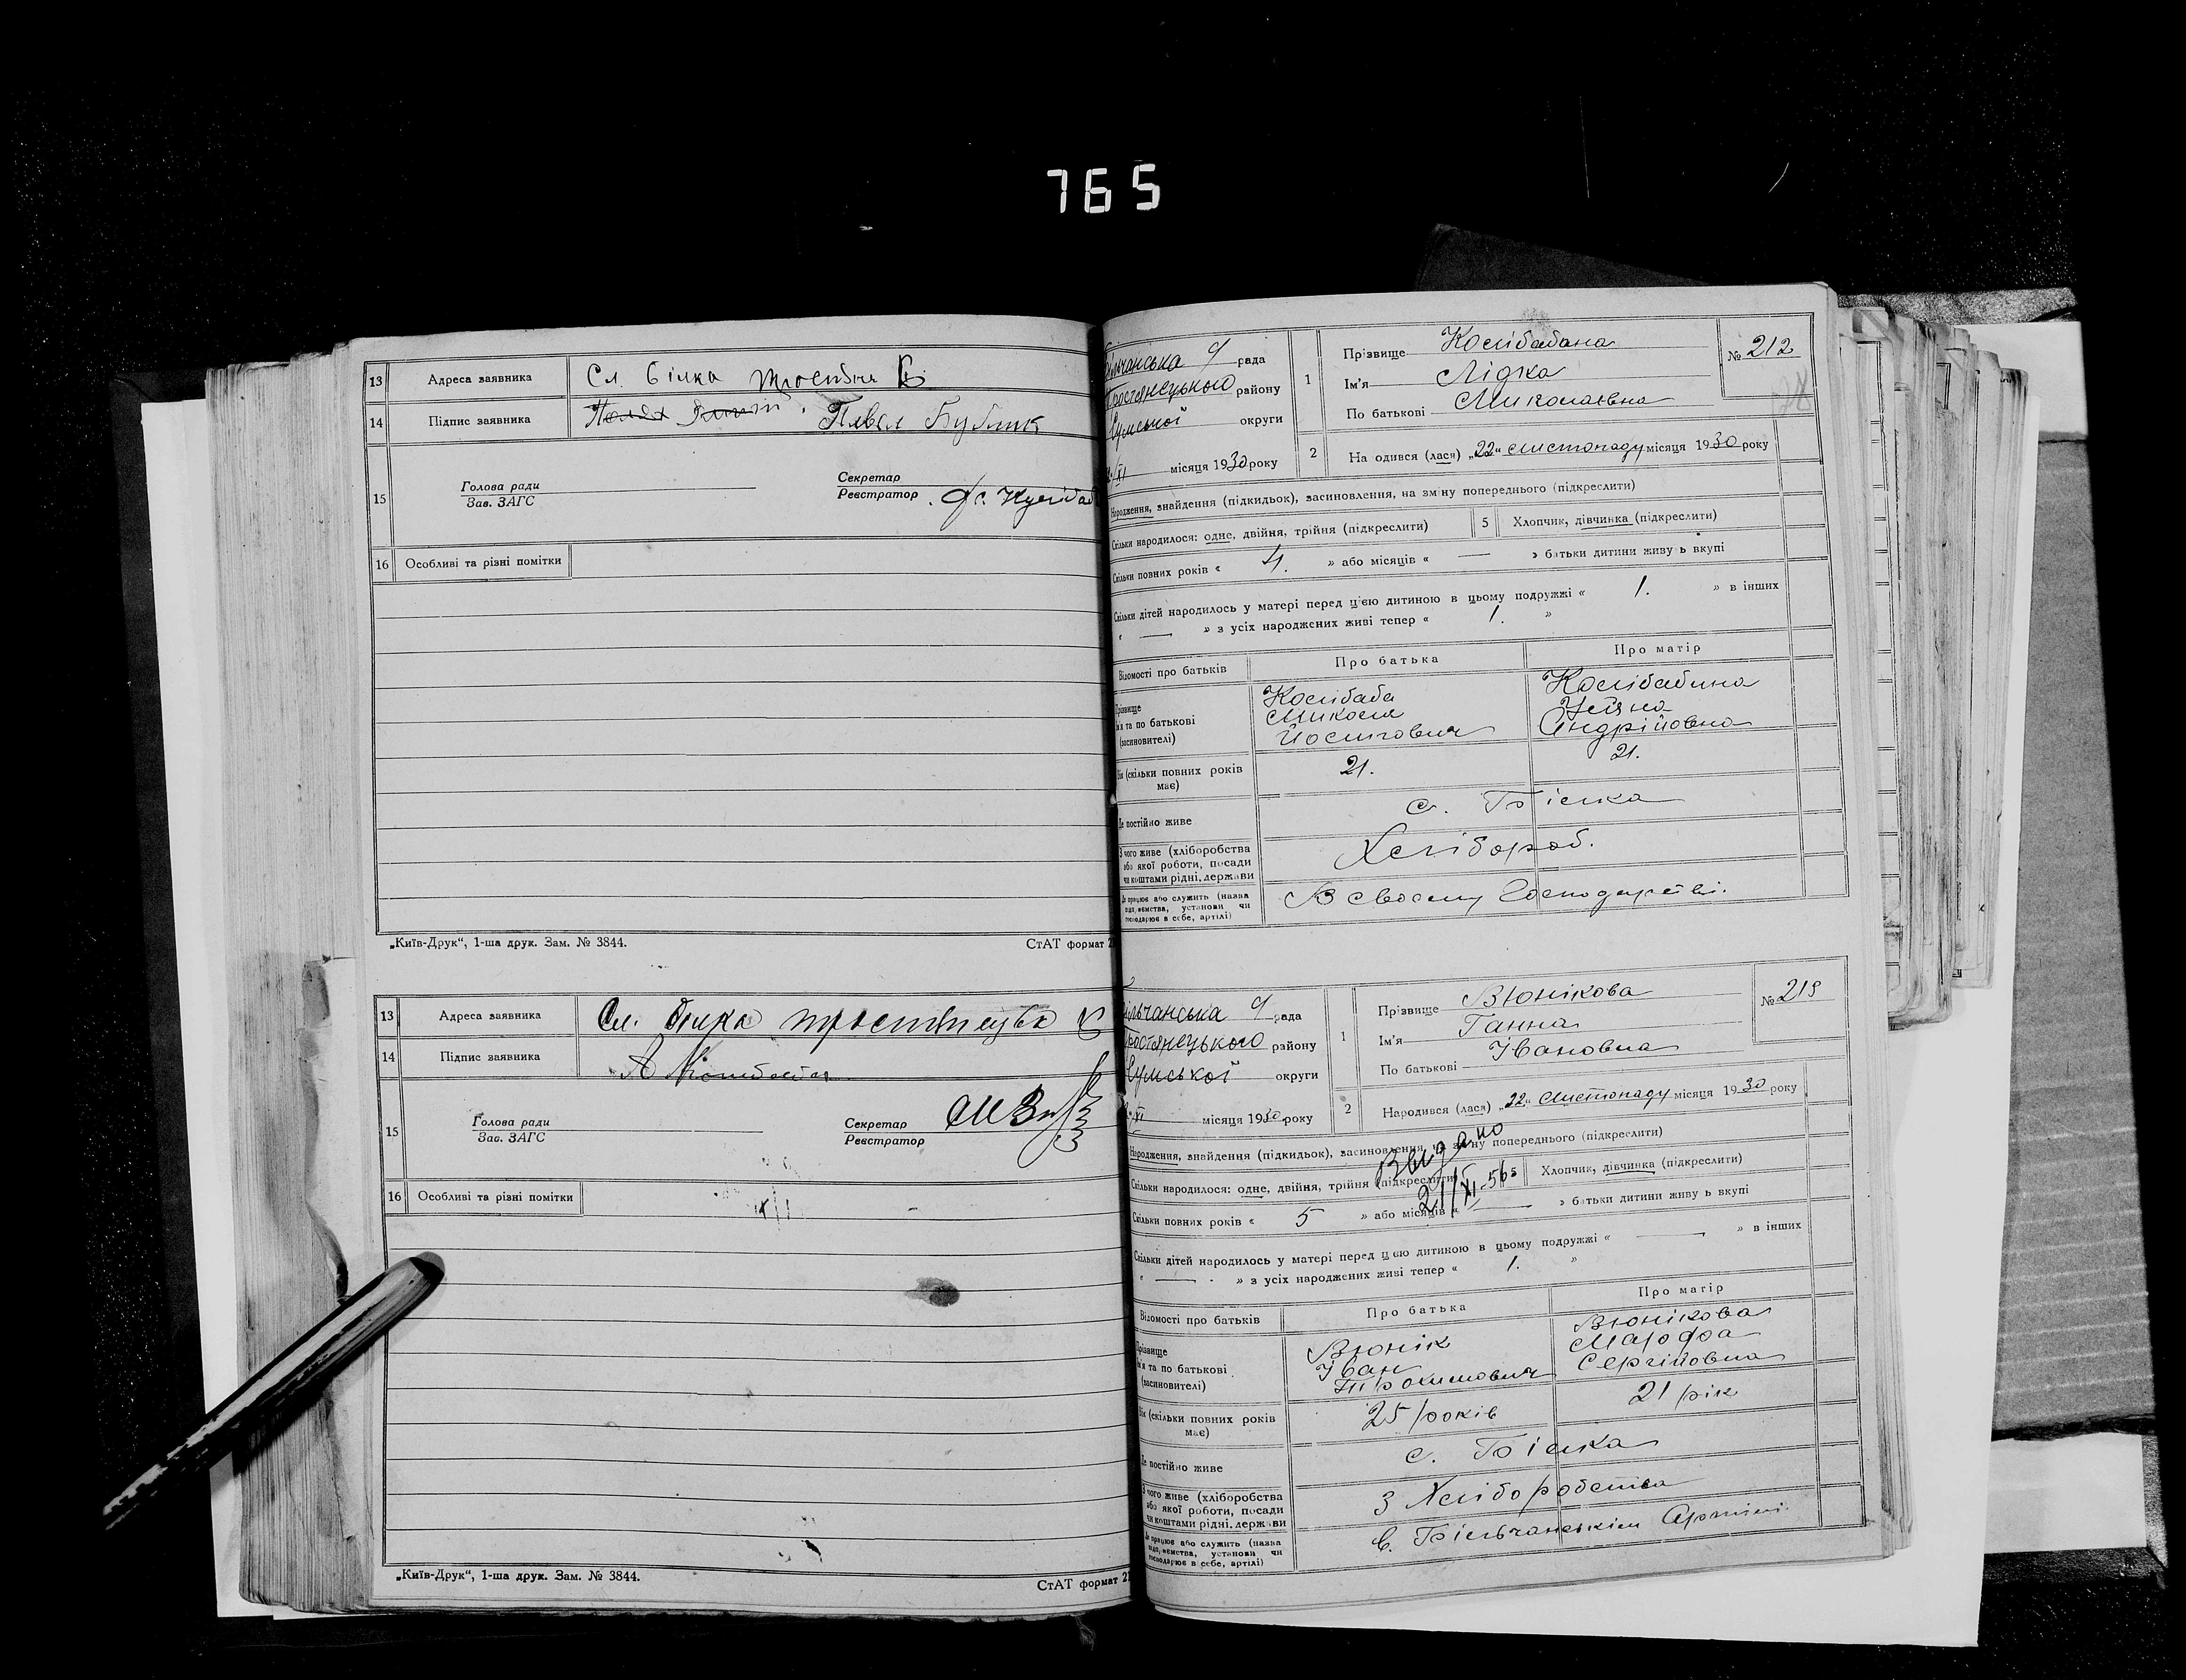 765
13 Адреса заявника Сл. Білка
14 Підпис заявника Павел Бублик
15 Голова ради Зав. ЗАГС Секретар Реєстратор
16 Особливі та різні помітки
„Київ-Друк“, 1-ша друк. Зам. № 3844. СтАТ формат
13 Адреса заявника Сл. білка
14 Підпис заявника
15 Голова ради Зав. ЗАГС Секретар Реєстратор
16 Особливі та різні помітки
„Київ-Друк“, 1-ша друк. Зам. № 3844. СтАТ формат
рада
Тростянецького району
Сумської округи
XI місяця 1930 року
1 Прізвище Колібабина
Ім'я Лідка
По батькові Миколаєвна
№ 212
2 На одився (лася) „22“ листопаду місяця 1930 року
Народження, знайдення (підкидьок), засиновлення, на зміну попереднього (підкреслити)
Скільки народилося: одне, двійня, трійня (підкреслити) 5 Хлопчик, дівчинка (підкреслити)
Скільки повних років « 4. » або місяців « — » батьки дитини живу ь вкупі
Скільки дітей народилось у матері перед цією дитиною в цьому подружжі « 1. » в інших
« — » з усіх народжених живі тепер « 1. »
Відомості про батьків Про батька Про матір
Прізвище Колібаба Колібабина
ім'я та по батькові Микола Уляна
(засиновителі) Йосипович Андрійовна
Вік (скільки повних років має) 21. 21.
Де постійно живе с. Білка
З чого живе (хліборобства або якої роботи, посади чи коштами рідні, держави Хлібороб.
Де працює або служить (назва підприємства, установи чи господарює в себе, артілі) В своєму Господарстві.
рада
Тростянецького району
Сумської округи
XI місяця 1930 року
1 Прізвище Вюнікова
Ім'я Ганна
По батькові Івановна
№ 213
2 Народився (лася) „22“ листопаду місяця 1930 року
Народження, знайдення (підкидьок), засиновлення, на зміну попереднього (підкреслити)
Видано
21/XI-56
Скільки народилося: одне, двійня, трійня (підкреслити) 5 Хлопчик, дівчинка (підкреслити)
Скільки повних років « 5 » або місяців « — » батьки дитини живу ь вкупі
Скільки дітей народилось у матері перед цією дитиною в цьому подружжі « — » в інших
« — » з усіх народжених живі тепер « 1. »
Відомості про батьків Про батька Про матір
Прізвище Вюнік Вюнікова
ім'я та по батькові Іван Марфа
(засиновителі) Трохимович Сергійовна
Вік (скільки повних років має) 25 років 21 рік
Де постійно живе с. Білка
З чого живе (хліборобства або якої роботи, посади чи коштами рідні, держави З Хліборобства
Де працює або служить (назва підприємства, установи чи господарює в себе, артілі) в. Більчанськім Артілі.